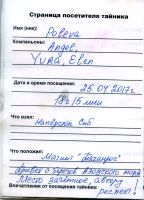 Страница посетителя тайника
Имя (ник): Poleva
Компаньоны: Angel,
Yura, Elen
Дата и время посещения: 25.04.2017г.
18ч 15 мин
Что взял: Напёрсток Спб
Что положил: Магнит "Таганрог"
Привет с берегов Азовского моря
Место зачётное, автору
Впечатления от посещения тайника: респект!